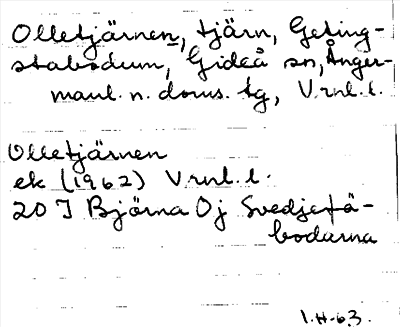 Olletjärnen, tjärn, Geting-
stabodum, Gideå sn, Ånger-
manl. n. doms. tg, Vrnl. l.
Olletjärnen
ek (1962) Vrnl. l.
20 I Björna Oj Svedjefä-
bodarna
1.H-63.